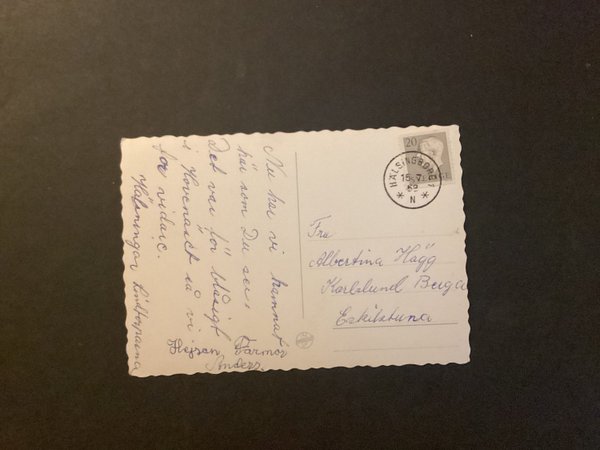 Nu har vi hamnat
här som Du ser.
Det var för blåsigt
i Hovenäset så vi
for vidare.
Hälsningar Lindbergarna
Hejsan, Farmor
Anders.
20
HÄLSINGBORG 1
15.7.
N
Fru
Albertina Hägg
Karlslund Berga
Eskilstuna